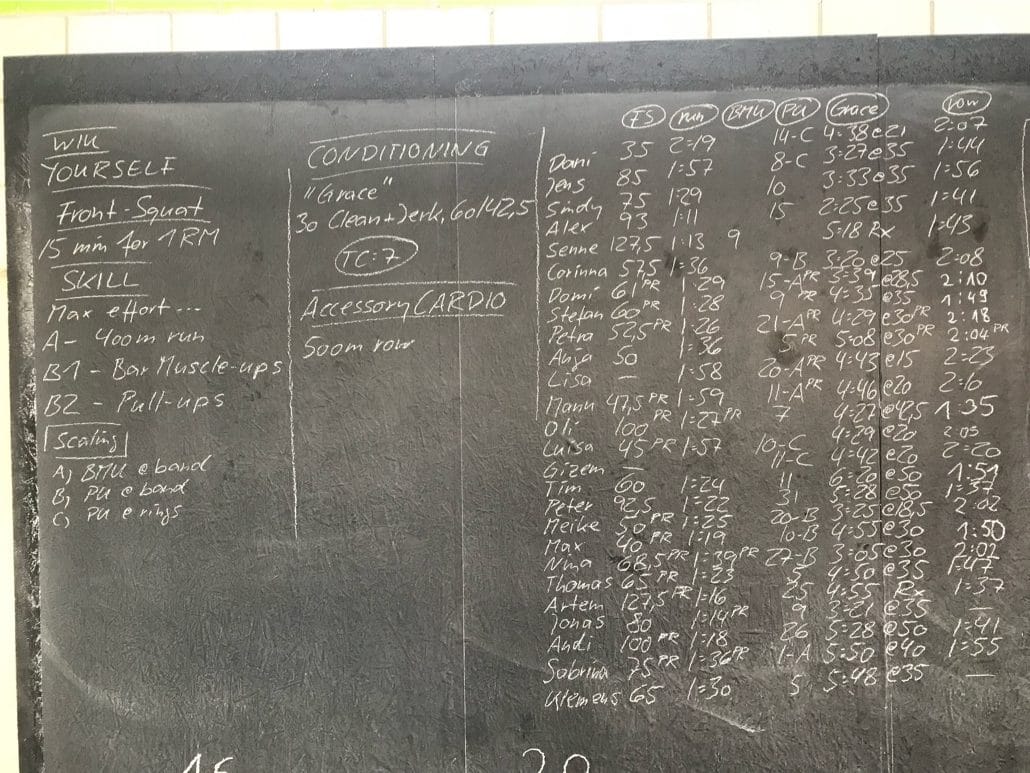 WU
YOURSELF
Front-Squat
15 mm for 1RM
SKILL
Max effort...
A - 400m run
B1 - Bar Muscle-ups
B2 - Pull-ups
Scaling
A) BMU @ band
B) PU @ band
C) PU @ rings
CONDITIONING
"Grace"
30 Clean+Jerk, 60/42,5
TC: 7
Accessory CARDIO
500m row
FS run BMU PU Grace row
Dani 35 2:19 14-C 4:38@21 2:07
Jens 85 1:57 8-C 3:27@35 1:44
Sindy 75 1:29 10 3:33@35 1:56
Alex 93 1:11 15 2:25@35 1:41
Senne 127,5 1:13 9 5:18 Rx 1:43
Corinna 57,5 1:36 9-B 3:20@25 2:08
Domi 61 PR 1:29 15-A PR 3:39@28,5 2:10
Stefan 60 PR 1:28 9 PR 4:35@35 1:49
Petra 52,5 PR 1:26 21-A PR 4:29@30 PR 2:18
Anja 50 1:36 5 PR 5:08@30 PR 2:04 PR
Lisa — 1:58 20-A PR 4:43@15 2:23
Manu 47,5 PR 1:59 11-A PR 4:46@20 2:10
Oli 100 PR 1:27 PR 7 4:27@42,5 1:35
Luisa 45 PR 1:57 10-C 4:29@20 2:05
Gizem — 11-C 4:42@20 2:20
Tim 60 1:24 11 6:20@50 1:51
Peter 92,5 1:22 31 5:28@50 1:37
Meike 50 PR 1:25 20-B 3:25@18,5 2:02
Max 40 PR 1:19 10-B 4:55@30 1:50
Nina 68,5 PR 1:39 PR 27-B 3:05@30 2:02
Thomas 65 PR 1:23 5 4:50@35 1:47
Artem 127,5 PR 1:16 25 4:55 Rx 1:37
Jonas 80 1:14 PR 9 3:21@35 —
Andi 100 PR 1:18 26 3:28@50 1:41
Sabrina 75 PR 1:36 PR 1-A 5:50@40 1:55
Klemens 65 1:30 5 5:48@35 —